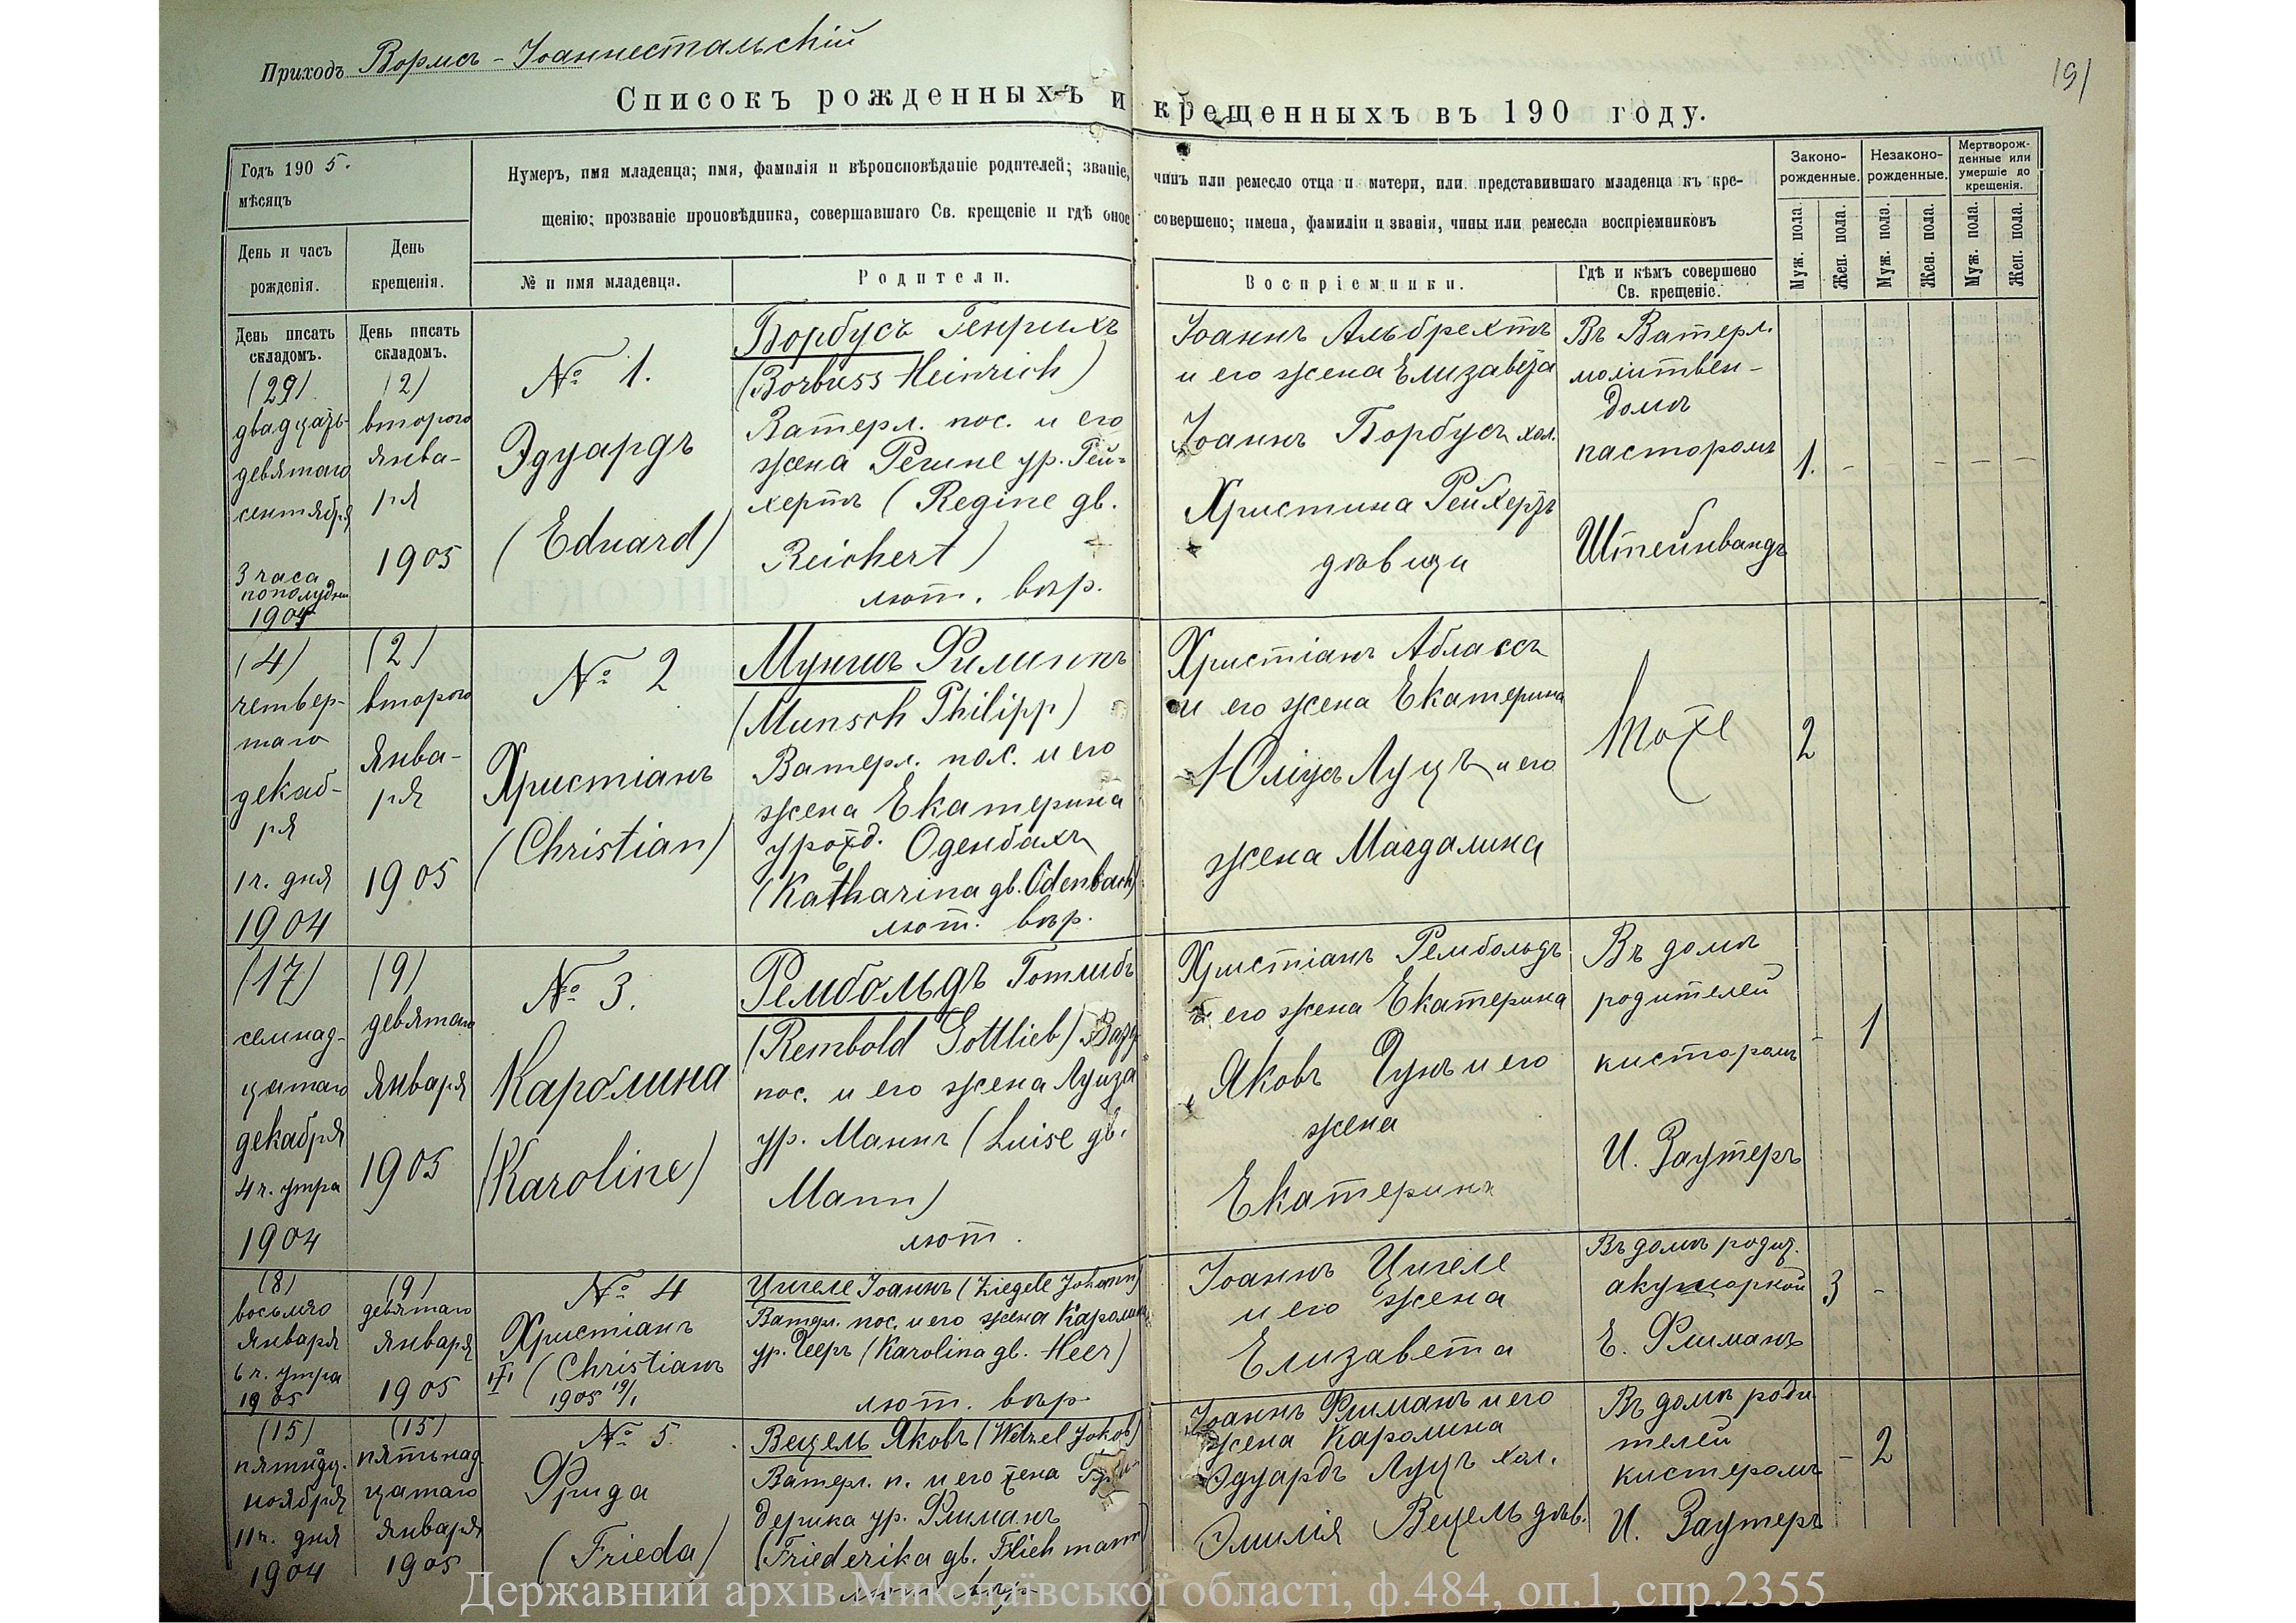 Приходъ Вормсъ-Іоаннестальскій
191
Списокъ рожденныхъ и крещенныхъ въ 190 году.
Годъ 1905.
мѣсяцъ
Нумеръ, имя младенца; имя, фамилія и вѣроисповѣданіе родителей; званіе, чинъ или ремесло отца и матери, или представившаго младенца къ кре-
щенію; прозваніе проповѣдника, совершавшаго Св. крещеніе и гдѣ оное совершено; имена, фамиліи и званія, чины или ремесла воспріемниковъ
Законо-
рожденные.
Незаконо-
рожденные.
Мертворож-
денные или
умершіе до
крещенія.
День и часъ
рожденія.
День
крещенія.
№ и имя младенца.
Родители.
Воспріемники.
Гдѣ и кѣмъ совершено
Св. крещеніе.
Муж. пола.
Жен. пола.
Муж. пола.
Жен. пола.
Муж. пола.
Жен. пола.
День писать
складомъ.
(29)
двадцать
девятаго
сентября
3 часа
пополудни
1904
День писать
складомъ.
(2)
второго
янва-
ря
1905
№ 1.
Эдуардъ
(Eduard)
Борбусъ Генрихъ
(Borbuss Heinrich)
Ватерл. пос. и его
жена Регине ур. Рей-
хертъ (Regine gb.
Reichert)
лют. вѣр.
Іоаннъ Альбрехтъ
и его жена Елизавета
Іоаннъ Борбусъ хол.
Христина Рейхертъ
дѣвица
Въ Ватерл.
молитвен-
домѣ
пасторомъ
Штейнвандъ
1. - - - - -
(4)
четвер-
таго
декаб-
ря
1 ч. дня
1904
(2)
второго
янва-
ря
1905
№ 2
Христіанъ
(Christian)
Муншъ Филиппъ
(Munsch Philipp)
Ватерл. пос. и его
жена Екатерина
урожд. Оденбахъ
(Katharina gb. Odenbach)
лют. вѣр.
Христіанъ Абласъ
и его жена Екатерина
Юліусъ Луцъ и его
жена Магдалина
тоже
2
(17)
семнад-
цатаго
декабря
4 ч. утра
1904
(9)
девятаго
января
1905
№ 3.
Каролина
(Karoline)
Рембольдъ Готлибъ
(Rembold Gottlieb)
пос. и его жена Луиза
ур. Маннъ (Luise gb.
Mann)
лют.
Христіанъ Рембольдъ
и его жена Екатерина
Яковъ и его
жена
Екатерина
Въ домѣ
родителей
кистеромъ
И. Заутеръ
- 1
(8)
восьмаго
января
6 ч. утра
1905
(9)
девятаго
января
1905
№ 4
Христіанъ
(Christian
1905 19/1
Цигеле Іоаннъ (Ziegele Johann)
Ватерл. пос. и его жена Каролина
ур. Гееръ (Karolina gb. Heer)
лют. вѣр.
Іоаннъ Цигеле
и его жена
Елизавета
Въ домѣ родит.
акушеркой
Е. Флиманъ
3 -
(15)
пятнадц.
ноября
11 ч. дня
1904
(15)
пятьнад
цатаго
января
1905
№ 5.
Фрида
(Frieda)
Вецель Яковъ (Wetzel Jakob)
Ватерл. п. и его жена
дерика ур. Флиманъ
(Friederika gb. Flichmann)
лют. вѣр
Іоаннъ Флиманъ и его
жена Каролина
Эдуардъ Луцъ хол.
Эмилія Вецель дѣв.
Въ домѣ роди
телей
кистеромъ
И. Заутеръ
- 2
Державний архів Миколаївської області, ф.484, оп.1, спр.2355